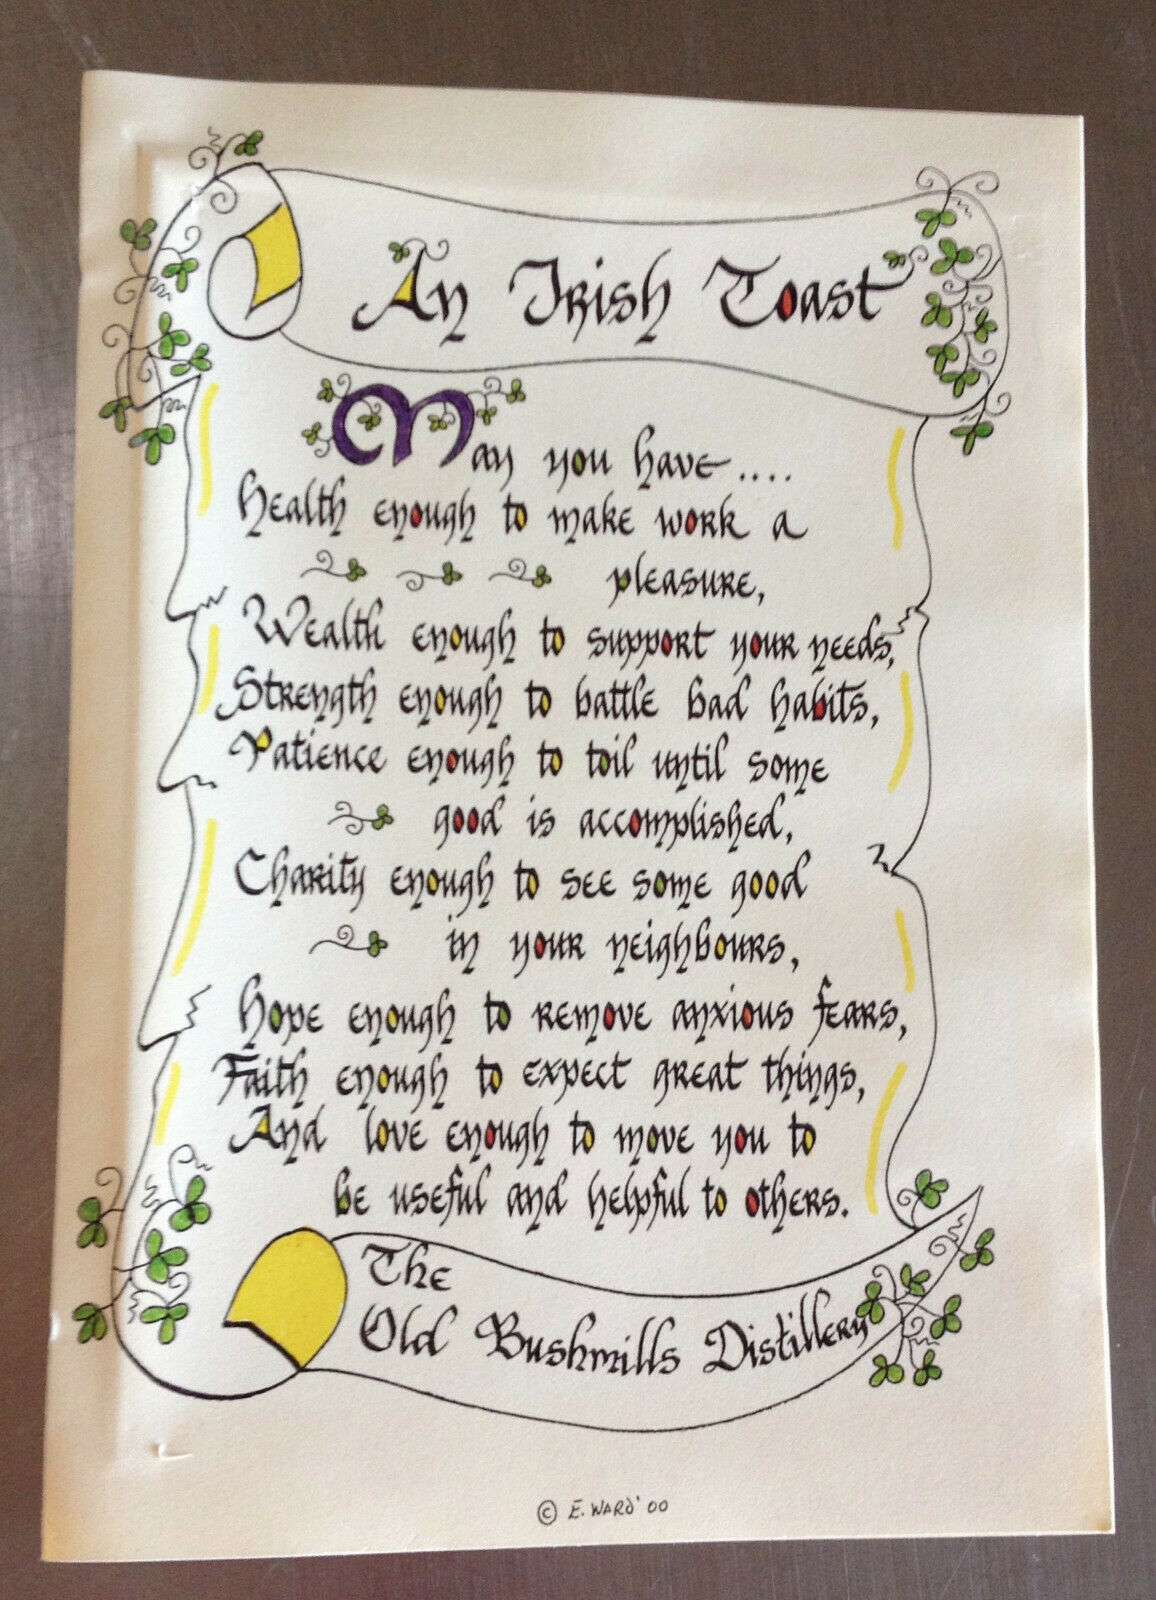 An Irish Toast
May you have....
Health enough to make work a
pleasure,
Wealth enough to support your needs,
Strength enough to battle bad habits,
Patience enough to toil until some
good is accomplished,
Charity enough to see some good
in your neighbours,
Hope enough to remove anxious fears,
Faith enough to expect great things,
And love enough to move you to
be useful and helpful to others.
The
Old Bushmills Distillery
© E. WARD '00